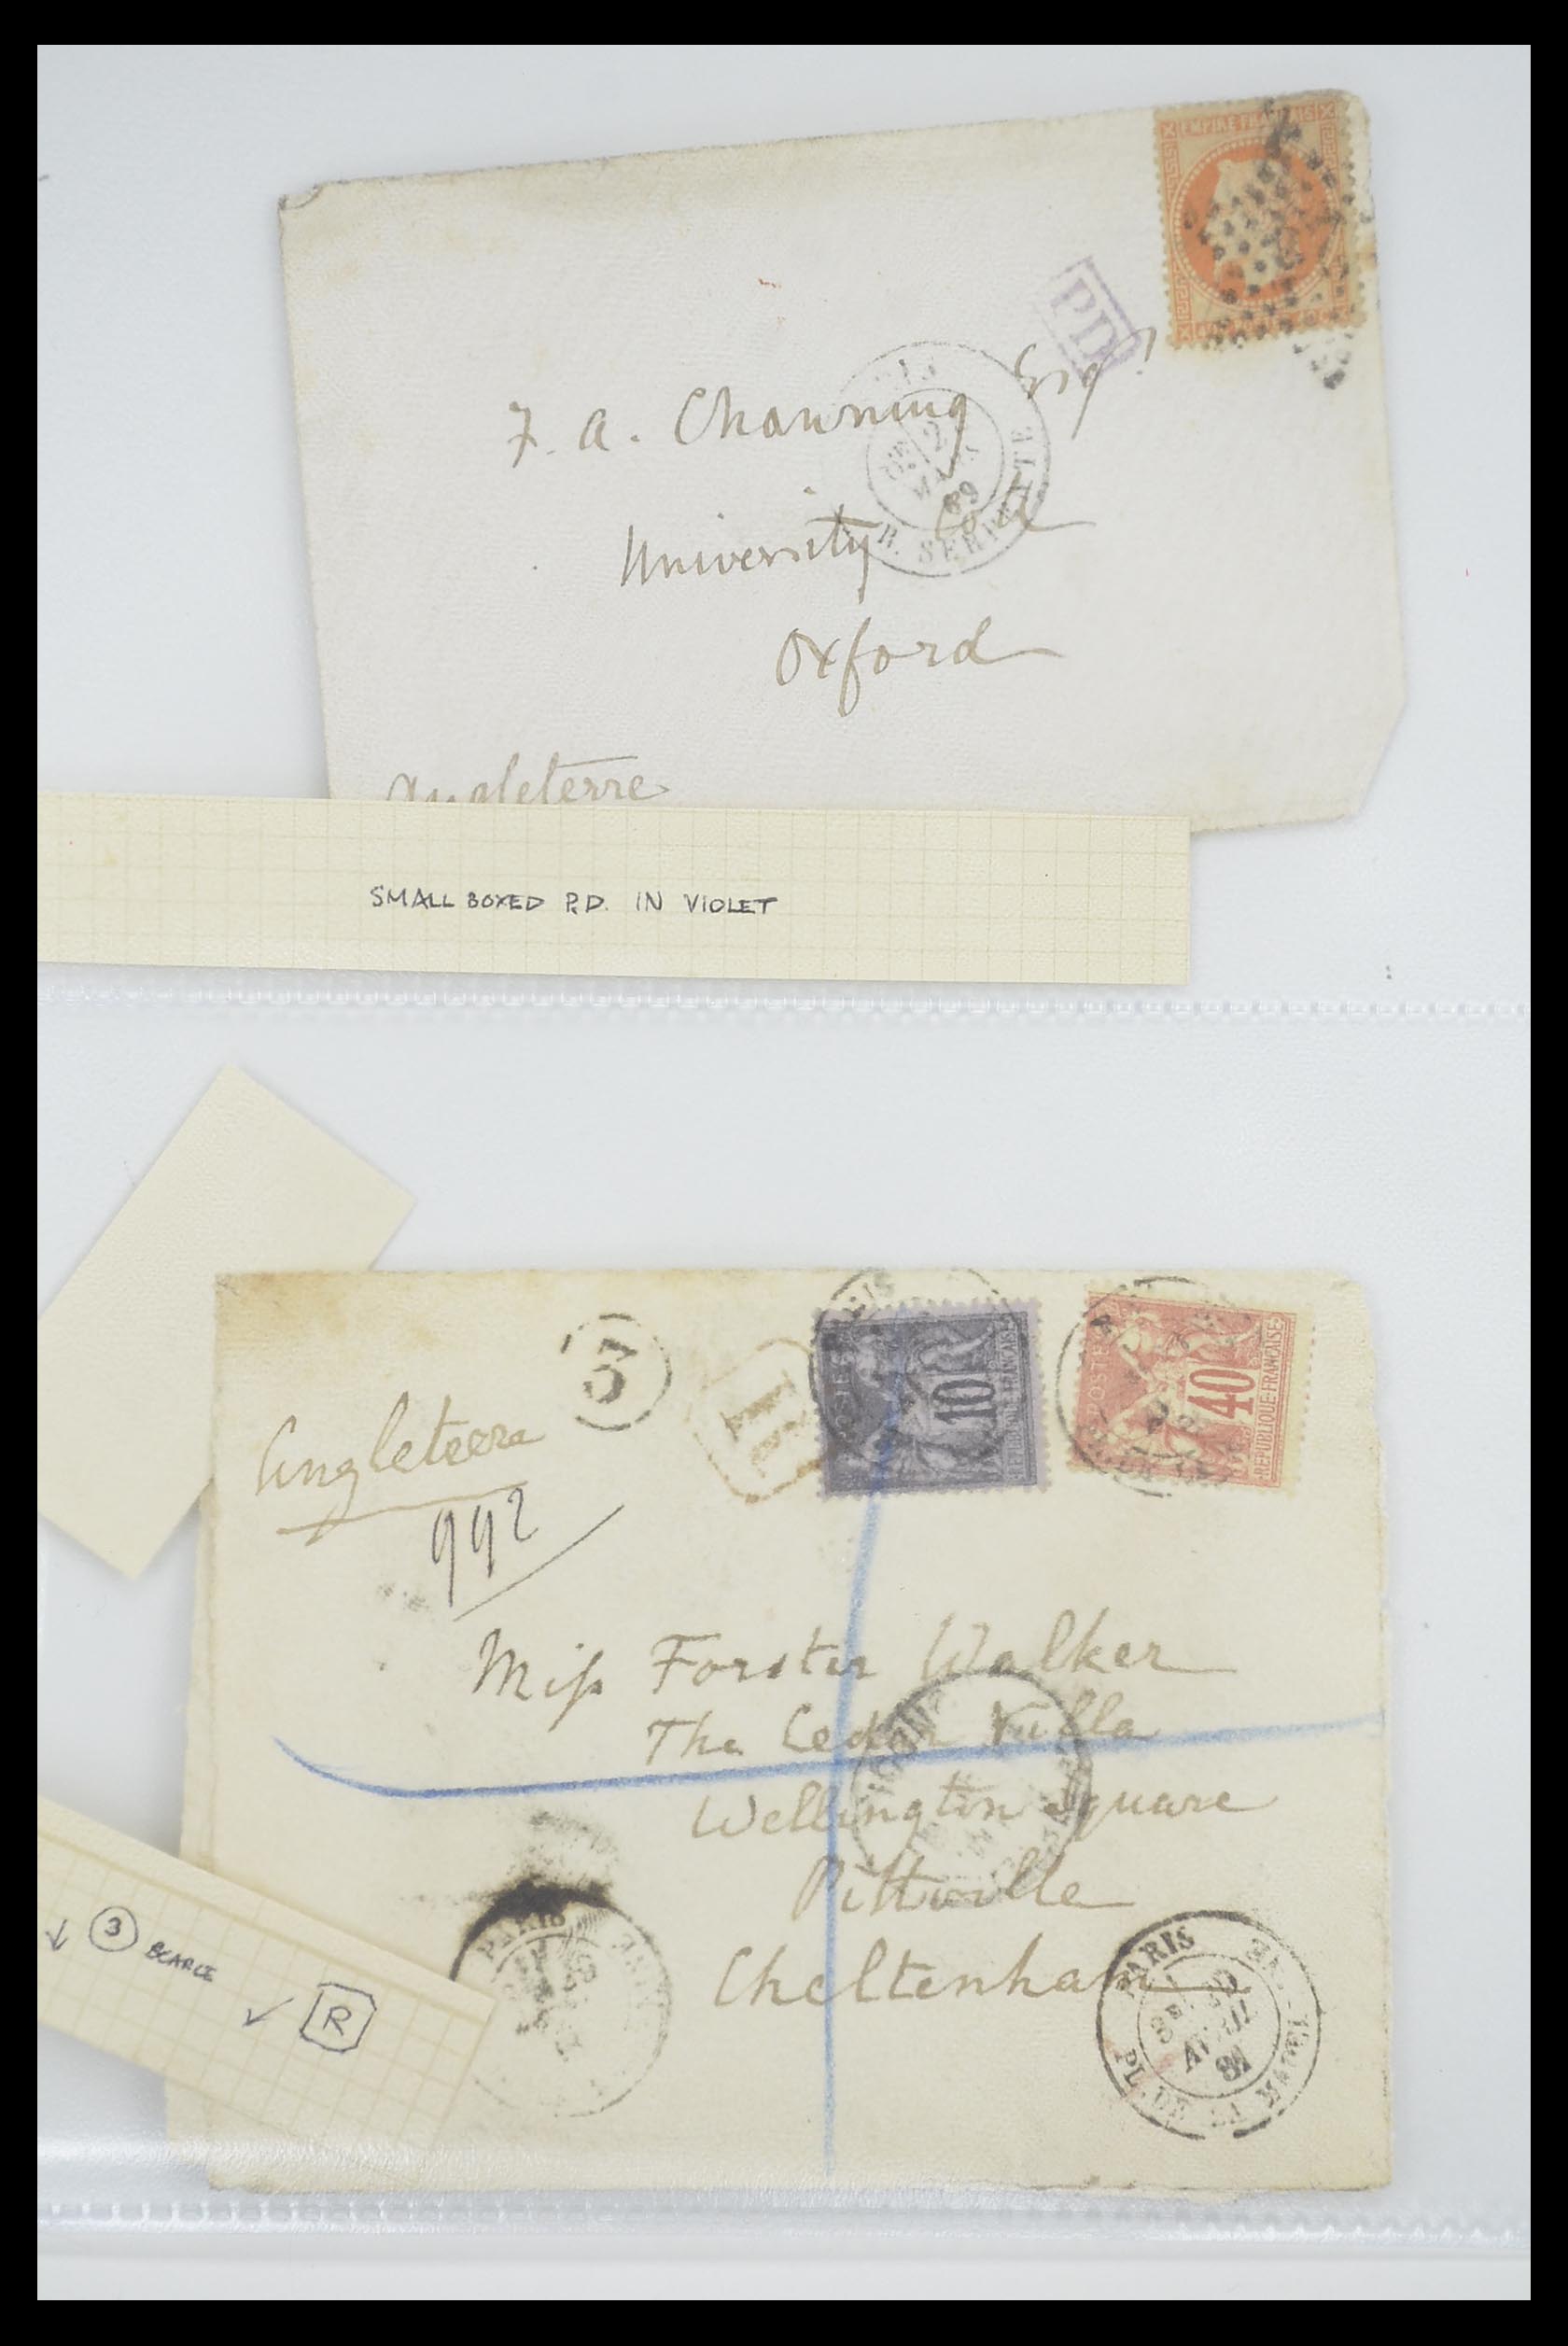 EMPIRE FRANÇAIS
PD
F. A. Channing Esqr
University Coll
Oxford
Angleterre
R. SERPENTE
2
69
SMALL BOXED P.D. IN VIOLET
3
R
PARIS
POSTES
10
REPUBLIQUE FRANÇAISE
POSTES
40
REPUBLIQUE FRANÇAISE
Angleterre
992
Miss Forster Walker
The Cedar Villa
Wellington Square
Pittville
Cheltenham
PARIS
PARIS
AVRIL
81
PL. DE LA
↓ 3 SCARCE
↙ R